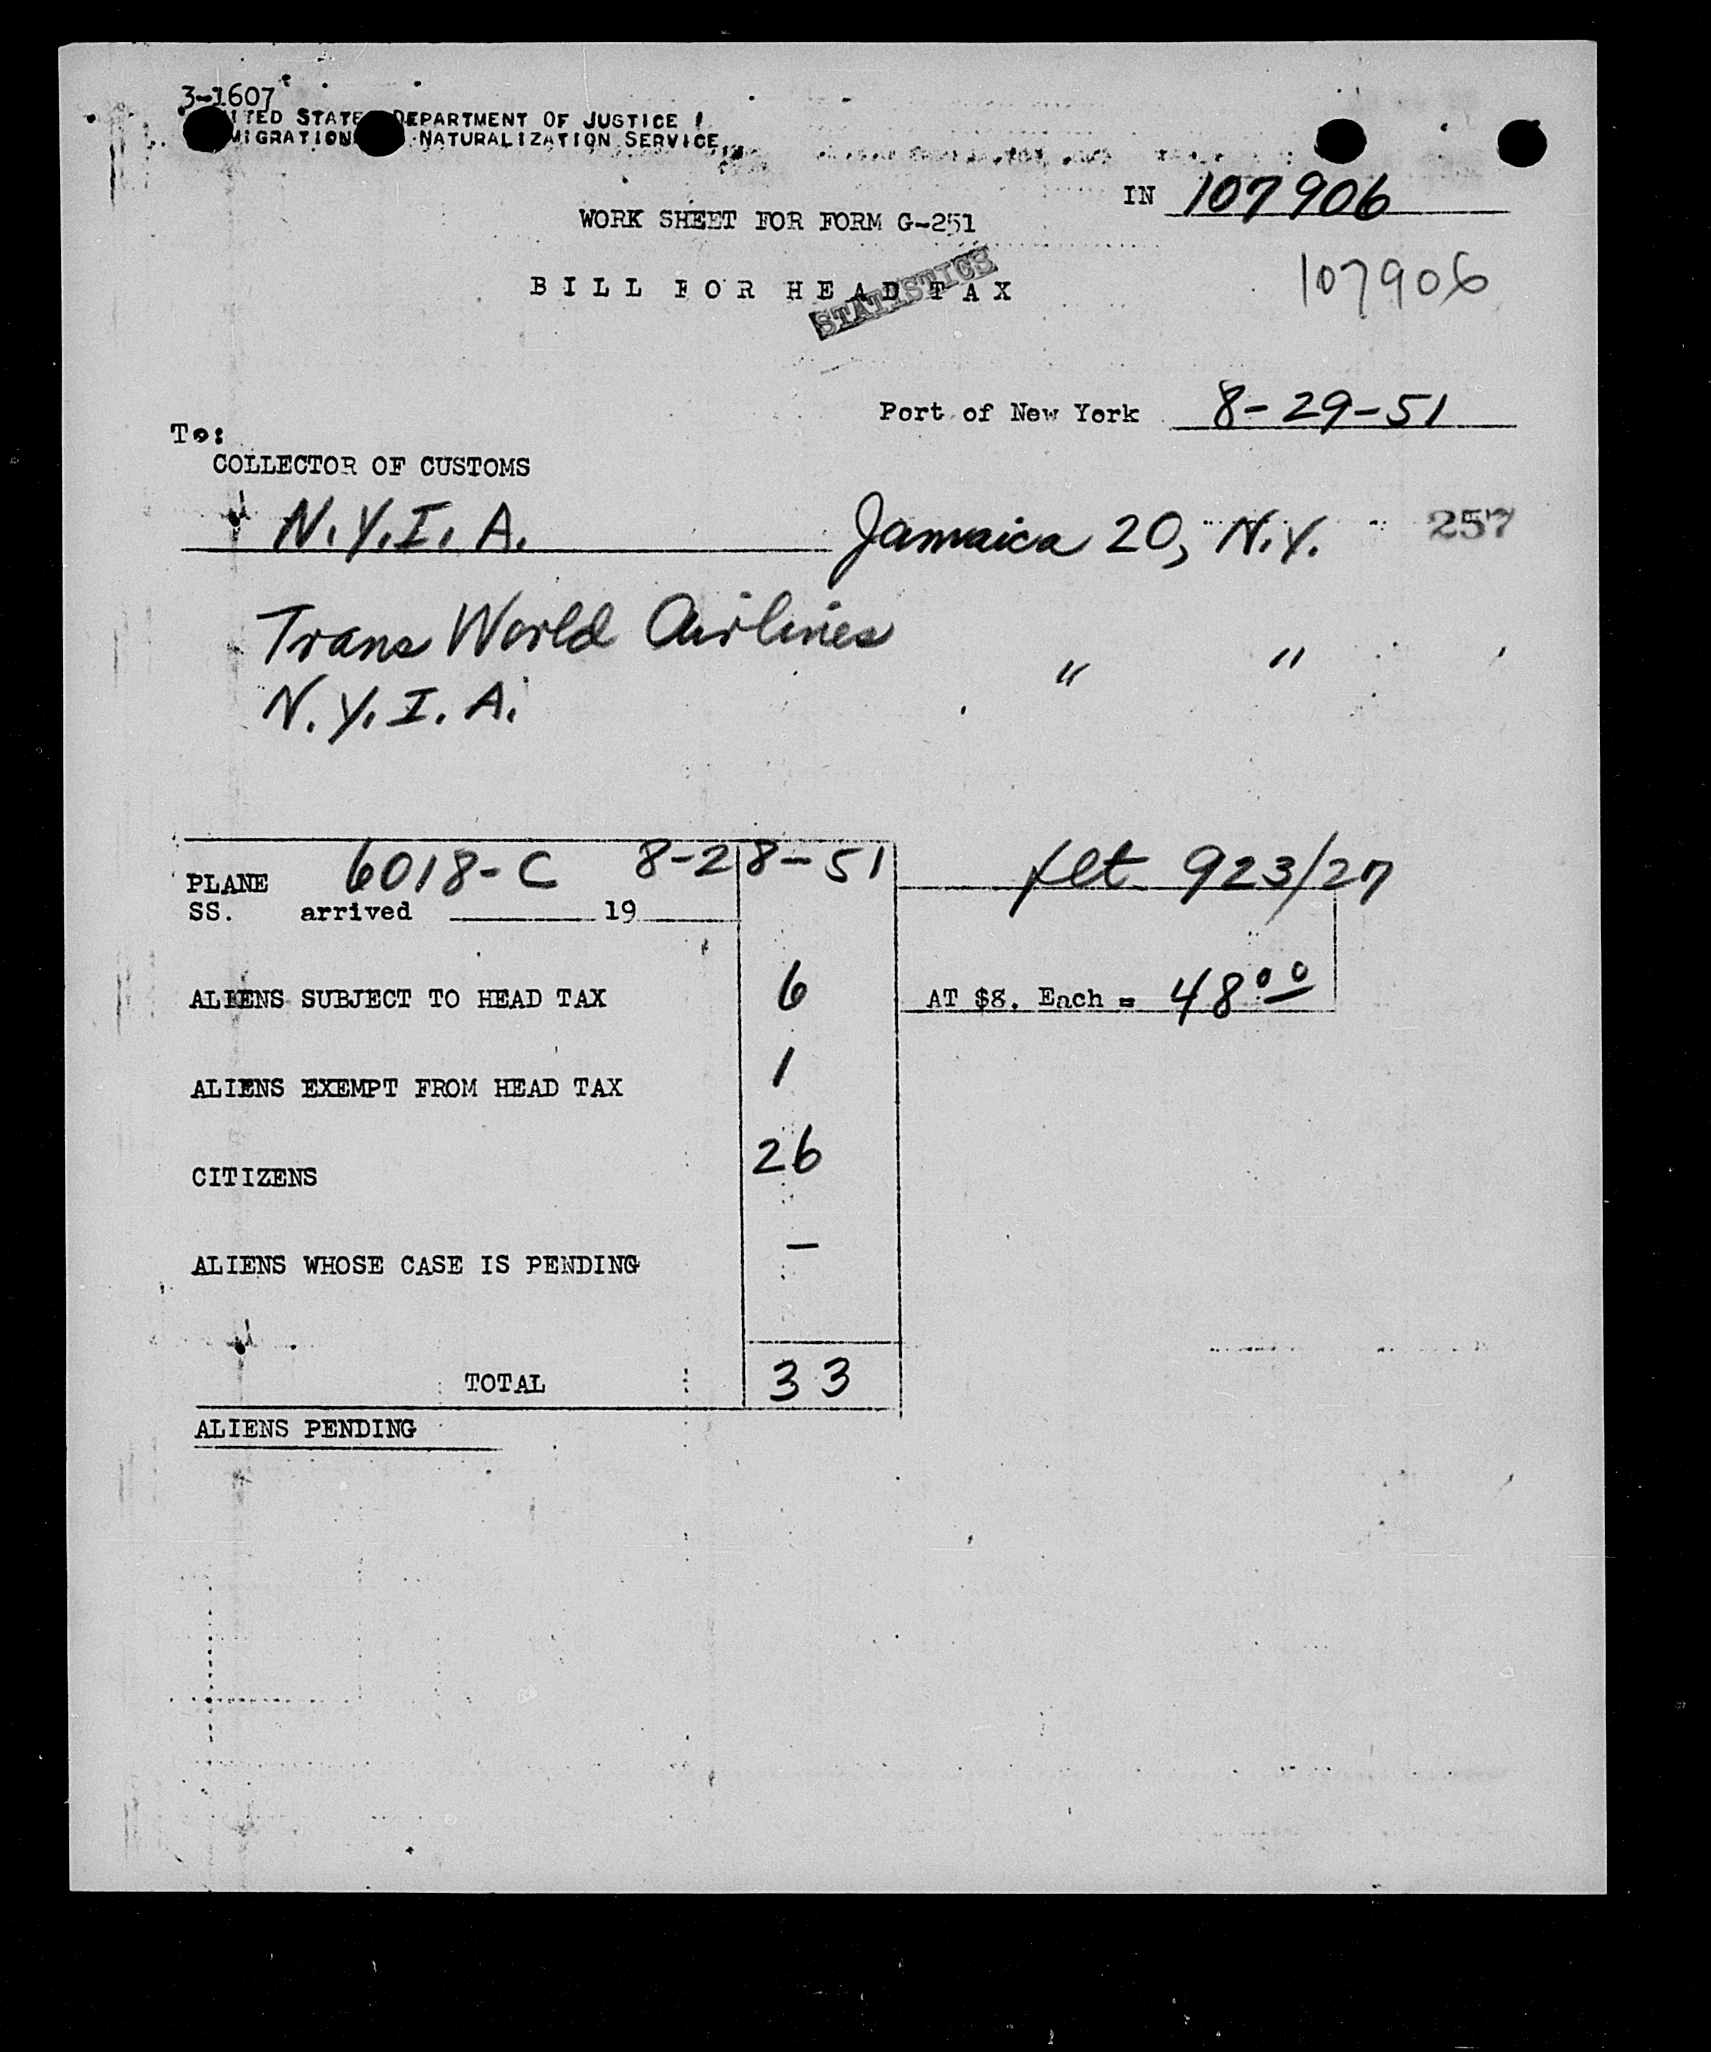 3-1607
ITED STATE DEPARTMENT OF JUSTICE
MIGRATION NATURALIZATION SERVICE
IN 107906
WORK SHEET FOR FORM G-251
107906
BILL FOR HEAD TAX
STATISTICS
Port of New York 8-29-51
To:
COLLECTOR OF CUSTOMS
N.Y.I.A. Jamaica 20, N.Y. 257
Trans World Airlines " "
N.Y.I.A.
PLANE 6018-C 8-28-51 flt 923/27
SS. arrived 19
ALIENS SUBJECT TO HEAD TAX 6 AT $8. Each = 48.00
ALIENS EXEMPT FROM HEAD TAX 1
CITIZENS 26
ALIENS WHOSE CASE IS PENDING -
TOTAL 33
ALIENS PENDING